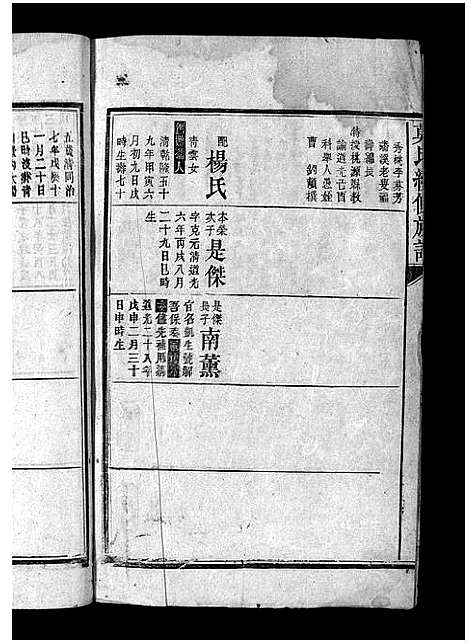 氏續修族譜
秀樓李苾芳
磻溪老叟福
壽躔長
特授桃源縣教
諭道光己酉
科舉人愚姪
曹鎔頓撰
配楊氏
青雲女
清乾隆五十
九年甲寅六
月初九日戌
時生壽七十
本榮次子是傑
字克元清道光
六年丙戌八月
二十九日巳時
生
是傑長子南薰
官名凱生號解
吾保
先補用
道光二十八年
戊申二月三十
日申時生
五歲清同治
七年戊
一月二十日
巳時沒葬青